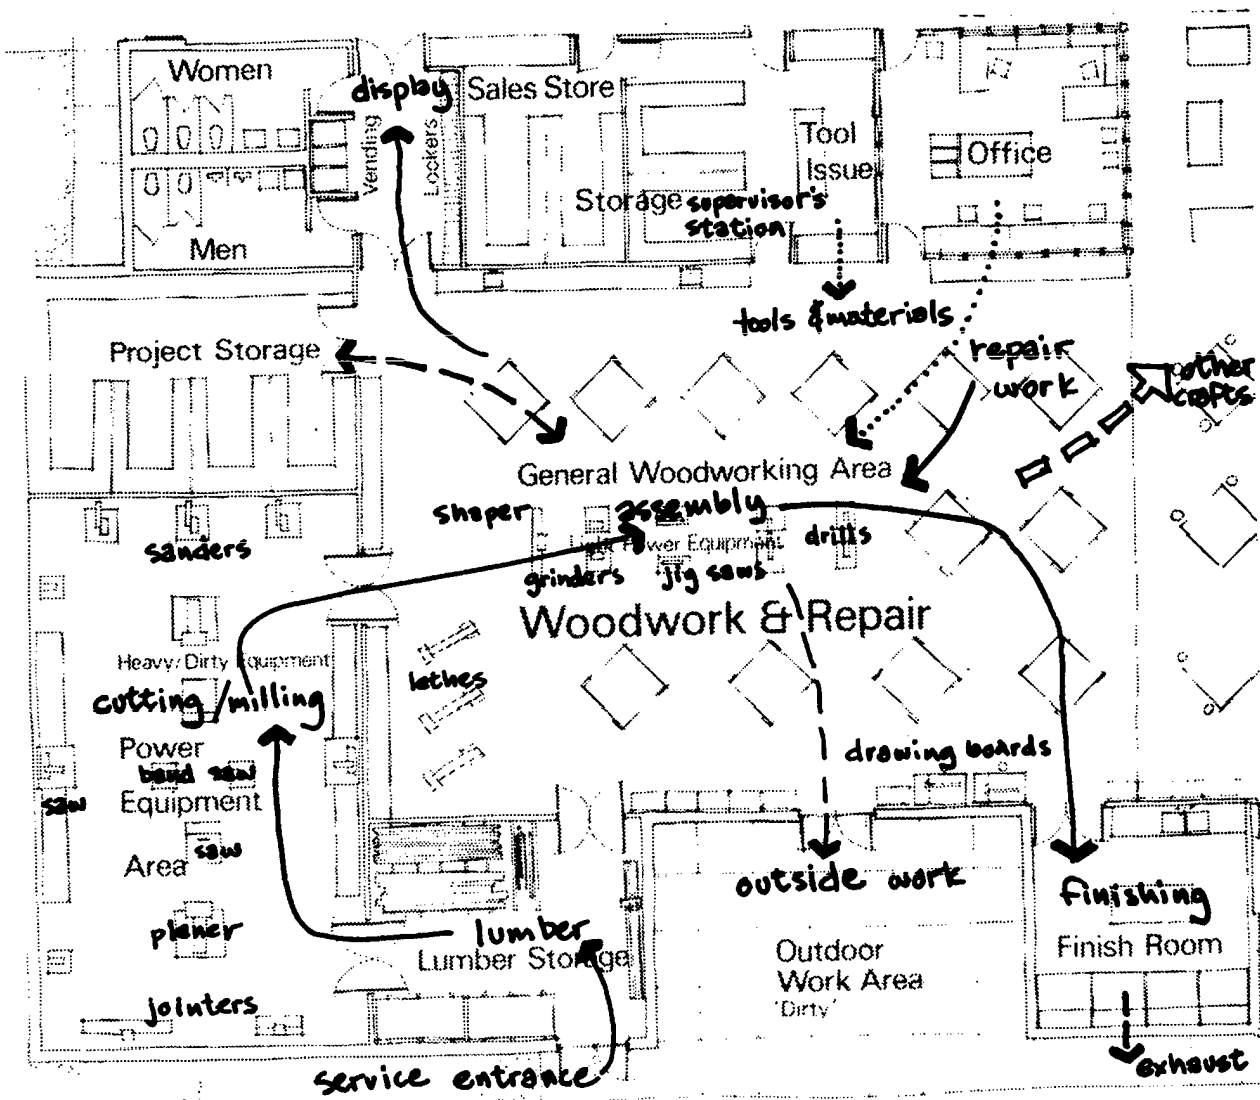 Women
display
Sales Store
Vending
Lockers
Tool
Issue
Office
Storage
supervisor's
station
Men
tools & materials
Project Storage
repair
work
other
crafts
General Woodworking Area
shaper
assembly
sanders
Power Equipment
drills
grinders
jig saws
Woodwork & Repair
Heavy/Dirty Equipment
cutting/milling
lathes
Power
Equipment
Area
band saw
saw
saw
drawing boards
planer
lumber
Lumber Storage
outside work
finishing
Outdoor
Work Area
'Dirty'
Finish Room
jointers
service entrance
exhaust